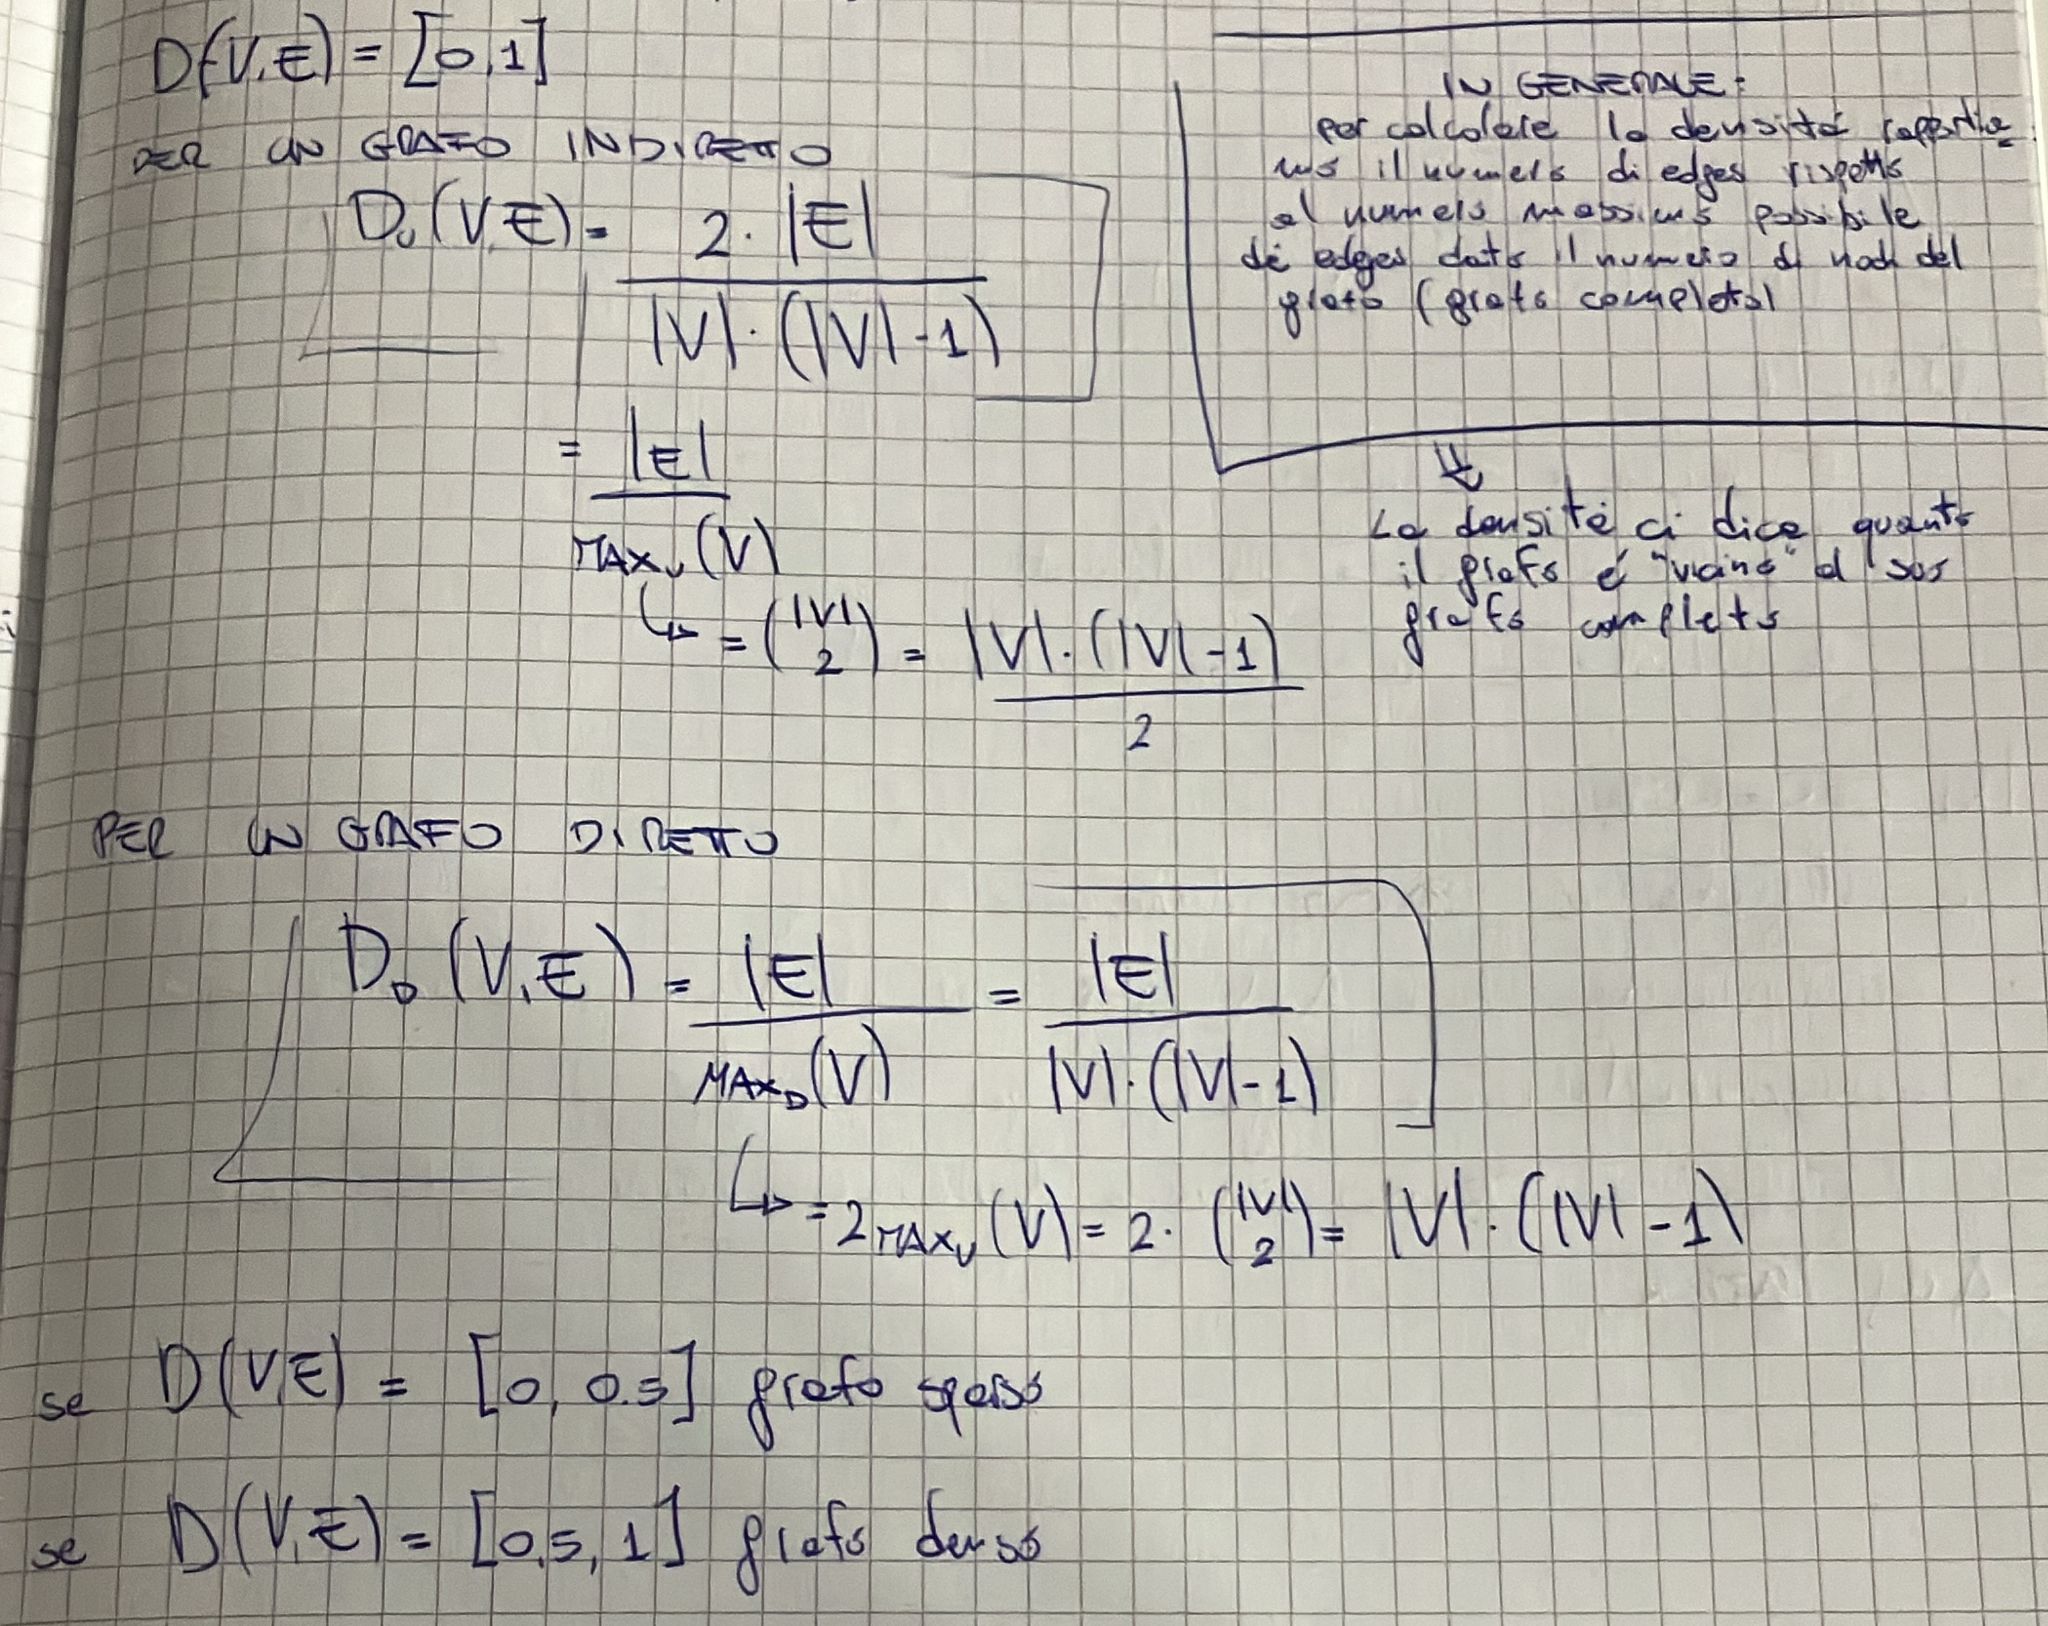 D(V,E) = [0,1]
PER UN GRAFO INDIRETTO
D_U(V,E) = 2·|E| / |V|·(|V|-1)
= |E| / MAX_U(V)
↳ = (|V| 2) = |V|·(|V|-1) / 2
IN GENERALE:
per calcolare la densità rapportia
mo il numero di edges rispetto
al numero massimo possibile
di edges dato il numero di nodi del
grafo (grafo completo)
⇓
La densità ci dice quanto
il grafo è "vicino" al suo
grafo completo
PER UN GRAFO DIRETTO
D_D(V,E) = |E| / MAX_D(V) = |E| / |V|·(|V|-1)
↳ = 2MAX_U(V) = 2·(|V| 2) = |V|·(|V|-1)
se D(V,E) = [0, 0.5] grafo sparso
se D(V,E) = [0.5, 1] grafo denso